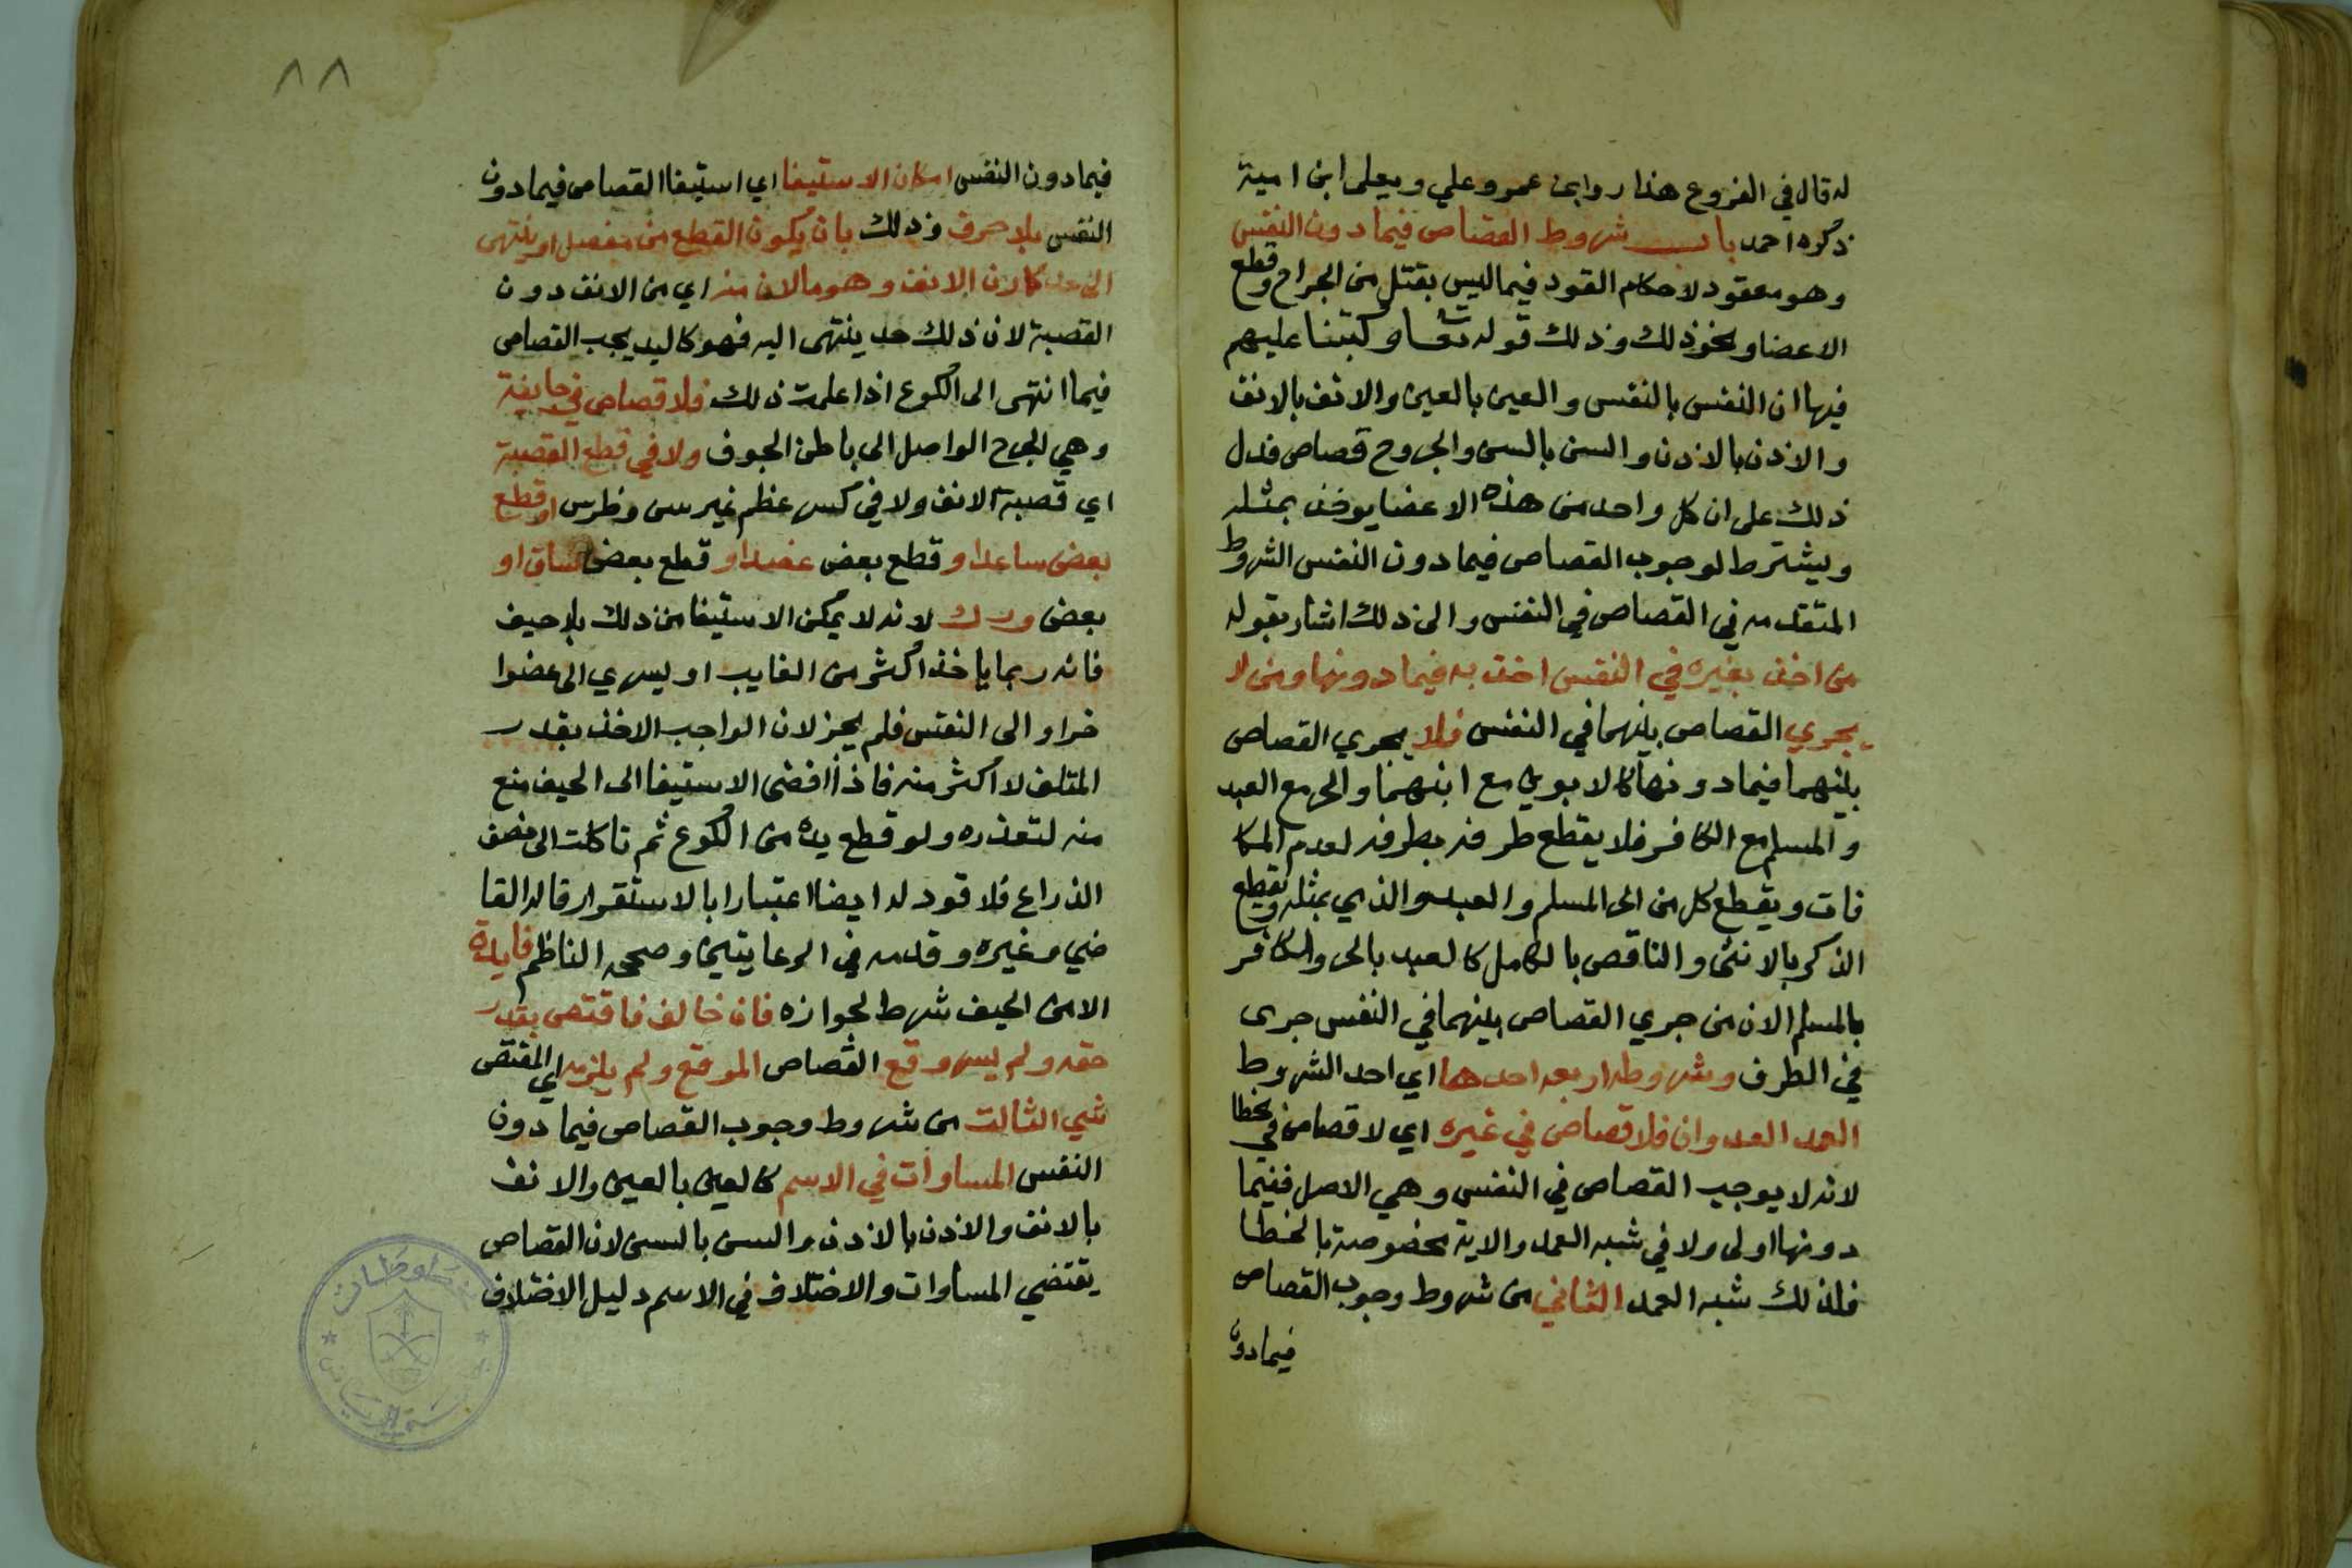 له قال في الفروع هذا رواية عمر وعلي ويعلى ابن امية
ذكره احمد باب شروط القصاص فيما دون النفس
وهو معقود لاحكام القود فيما ليس بقتل من الجراح وقطع
الاعضا ونحو ذلك وذلك قوله تعا وكتبنا عليهم
فيها ان النفس بالنفس والعين بالعين والانف بالانف
والاذن بالاذن والسن بالسن والجروح قصاص فدل
ذلك على ان كل واحد من هذه الاعضا يوخذ بمثله
ويشترط لوجوب القصاص فيما دون النفس الشروط
المتقدمه في القصاص في النفس والى ذلك اشار بقوله
من اخذ بغيره في النفس اخذ به فيما دونها ومن لا
يجري القصاص بينهما في النفس فلا يجري القصاص
بينهما فيما دونها كالابوين مع ابنهما والحر مع العبد
والمسلم مع الكافر فلا يقطع طرفه بطرفه لعدم المكا
فات ويقطع كل من الحر المسلم والعبد والذمي بمثله ويقطع
الذكر بالانثى والناقص بالكامل كالعبد بالحر والكافر
بالمسلم الان من جري القصاص بينهما في النفس جرى
في الطرف وشروطه اربعه احدها اي احد الشروط
العمد العدوان فلا قصاص في غيره اي لا قصاص في خطا
لانه لا يوجب القصاص في النفس وهي الاصل ففيما
دونها اولى ولا في شبه العمد والاية مخصوصة بالخطا
فلذلك شبه العمد الثاني من شروط وجوب القصاص
فيما دون
٨٨
فيما دون النفس امكان الاستيفا اي استيفا القصاص فيما دون
النفس بلا حيف وذلك بان يكون القطع من مفصل او ينتهى
الى حد كمارن الانف وهو ما لان منه اي من الانف دون
القصبة لان ذلك حد ينتهى اليه فهو كاليد يجب القصاص
فيما انتهى الى الكوع اذا علمت ذلك فلا قصاص في جايفة
وهي الجرح الواصل الى باطن الجوف ولا في قطع القصبة
اي قصبة الانف ولا في كسر عظم غير سن وضرس او قطع
بعض ساعد او قطع بعض عضد او قطع بعض ساق او
بعض ورك لانه لا يمكن الاستيفا من ذلك بلا حيف
فانه ربما ياخذ اكثر من الفايت او يسري الى عضوا
خر او الى النفس فلم يجز لان الواجب الاخذ بقدر
المتلف لا اكثر منه فاذا افضى الاستيفا الى الحيف منع
منه لتعذره ولو قطع يده من الكوع ثم تاكلت الى نصف
الذراع فلا قود له ايضا اعتبارا بالاستقرار قاله القا
ضي وغيره وقدمه في الرعايتين وصححه الناظم فايدة
الامن الحيف شرط لجوازه فان خالف فاقتص بقدر
حقه ولم يسر وقع القصاص الموقع ولم يلزمه اي المقتص
شي الثالث من شروط وجوب القصاص فيما دون
النفس المساوات في الاسم كالعين بالعين والانف
بالانف والاذن بالاذن والسن بالسن لان القصاص
يقتضي المساوات والاختلاف في الاسم دليل الاختلاف